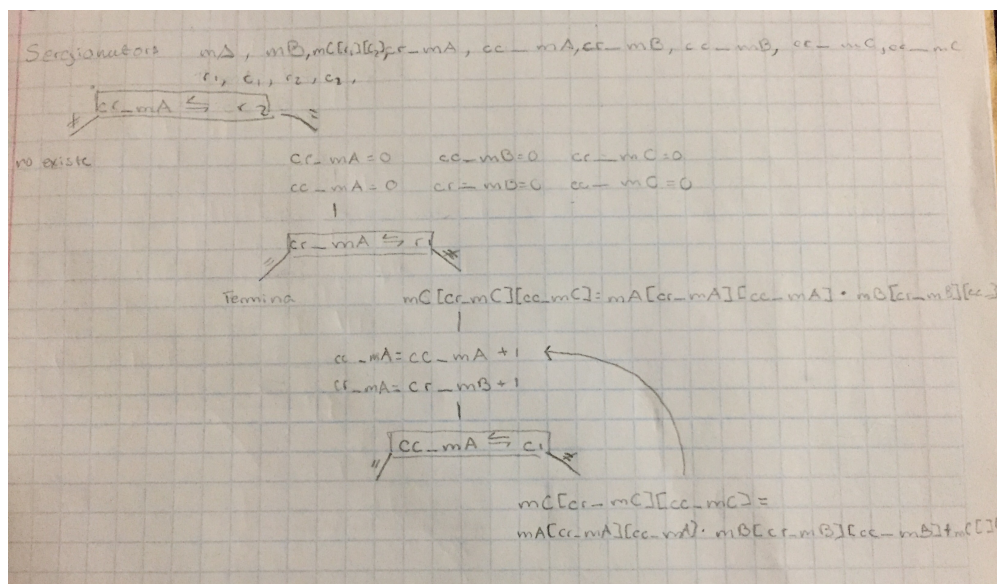 mA, mB, mC[r1][c2], cr_mA, cc_mA, cr_mB, cc_mB, cr_mC, cc_mC
r1, c1, r2, c2,
cr_mA ⇆ r2
≠ =
no existe
cc_mA=0 cc_mB=0 cr_mC=0
cc_mA=0 cr_mB=0 cc_mC=0
cr_mA ⇆ r1
= ≠
Termina
mC[cr_mC][cc_mC]=mA[cr_mA][cc_mA]·mB[cr_mB][cc_
cc_mA=cc_mA+1
cr_mA=cr_mB+1
cc_mA ⇆ c1
= ≠
mC[cr_mC][cc_mC]=
mA[cr_mA][cc_mA]·mB[cr_mB][cc_mB]+mC[][